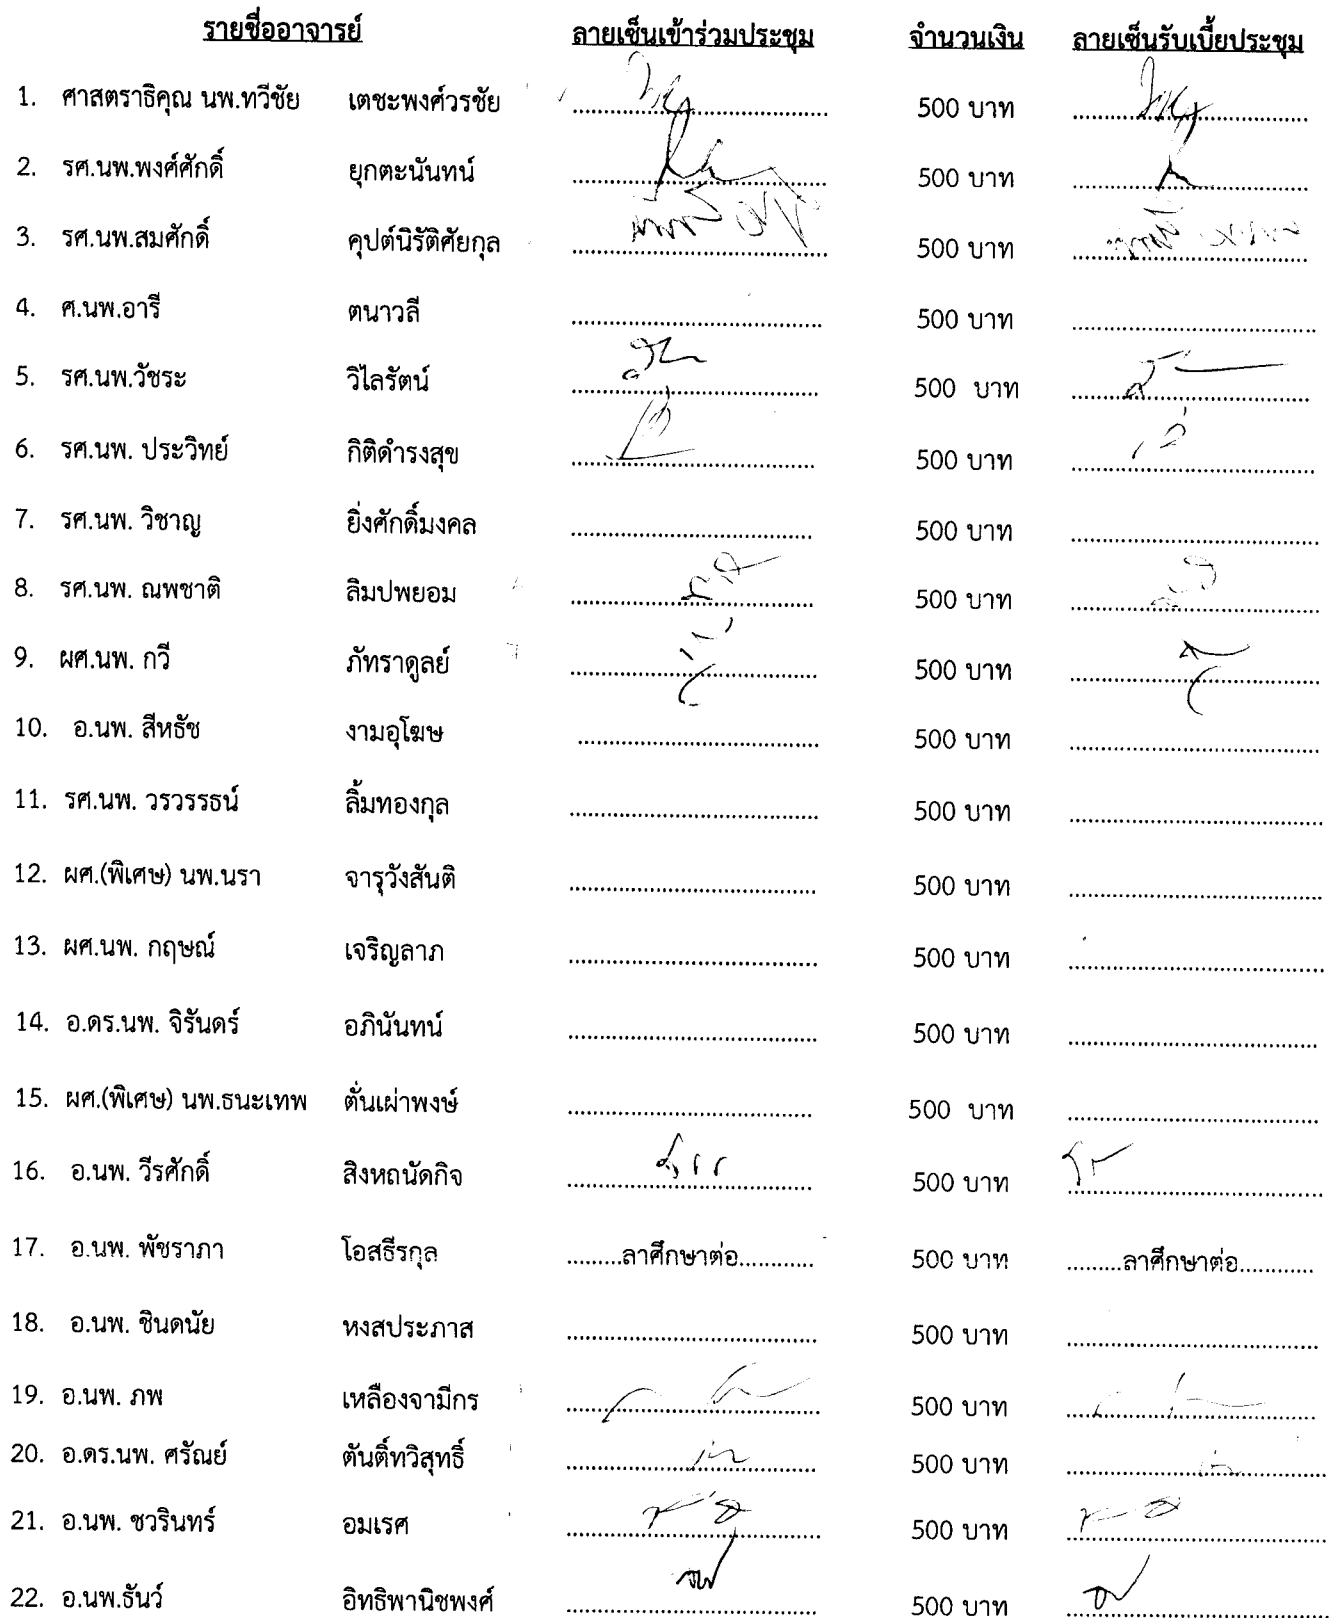 รายชื่ออาจารย์ ลายเซ็นเข้าร่วมประชุม จำนวนเงิน ลายเซ็นรับเบี้ยประชุม
1. ศาสตราธิคุณ นพ.ทวีชัย เตชะพงศ์วรชัย ........................................ 500 บาท ........................................
2. รศ.นพ.พงศ์ศักดิ์ ยุกตะนันทน์ ........................................ 500 บาท ........................................
3. รศ.นพ.สมศักดิ์ คุปต์นิรัติศัยกุล ........................................ 500 บาท ........................................
4. ศ.นพ.อารี ตนาวลี ........................................ 500 บาท ........................................
5. รศ.นพ.วัชระ วิไลรัตน์ ........................................ 500 บาท ........................................
6. รศ.นพ. ประวิทย์ กิติดำรงสุข ........................................ 500 บาท ........................................
7. รศ.นพ. วิชาญ ยิ่งศักดิ์มงคล ........................................ 500 บาท ........................................
8. รศ.นพ. ณพชาติ ลิมปพยอม ........................................ 500 บาท ........................................
9. ผศ.นพ. กวี ภัทราดูลย์ ........................................ 500 บาท ........................................
10. อ.นพ. สีหธัช งามอุโฆษ ........................................ 500 บาท ........................................
11. รศ.นพ. วรวรรธน์ ลิ้มทองกุล ........................................ 500 บาท ........................................
12. ผศ.(พิเศษ) นพ.นรา จารุวังสันติ ........................................ 500 บาท ........................................
13. ผศ.นพ. กฤษณ์ เจริญลาภ ........................................ 500 บาท ........................................
14. อ.ดร.นพ. จิรันดร์ อภินันทน์ ........................................ 500 บาท ........................................
15. ผศ.(พิเศษ) นพ.ธนะเทพ ตั่นเผ่าพงษ์ ........................................ 500 บาท ........................................
16. อ.นพ. วีรศักดิ์ สิงหถนัดกิจ ........................................ 500 บาท ........................................
17. อ.นพ. พัชราภา โอสธีรกุล .........ลาศึกษาต่อ............ 500 บาท .........ลาศึกษาต่อ............
18. อ.นพ. ชินดนัย หงสประภาส ........................................ 500 บาท ........................................
19. อ.นพ. ภพ เหลืองจามีกร ........................................ 500 บาท ........................................
20. อ.ดร.นพ. ศรัณย์ ตันติ์ทวิสุทธิ์ ........................................ 500 บาท ........................................
21. อ.นพ. ชวรินทร์ อมเรศ ........................................ 500 บาท ........................................
22. อ.นพ.ธันว์ อิทธิพานิชพงศ์ ........................................ 500 บาท ........................................